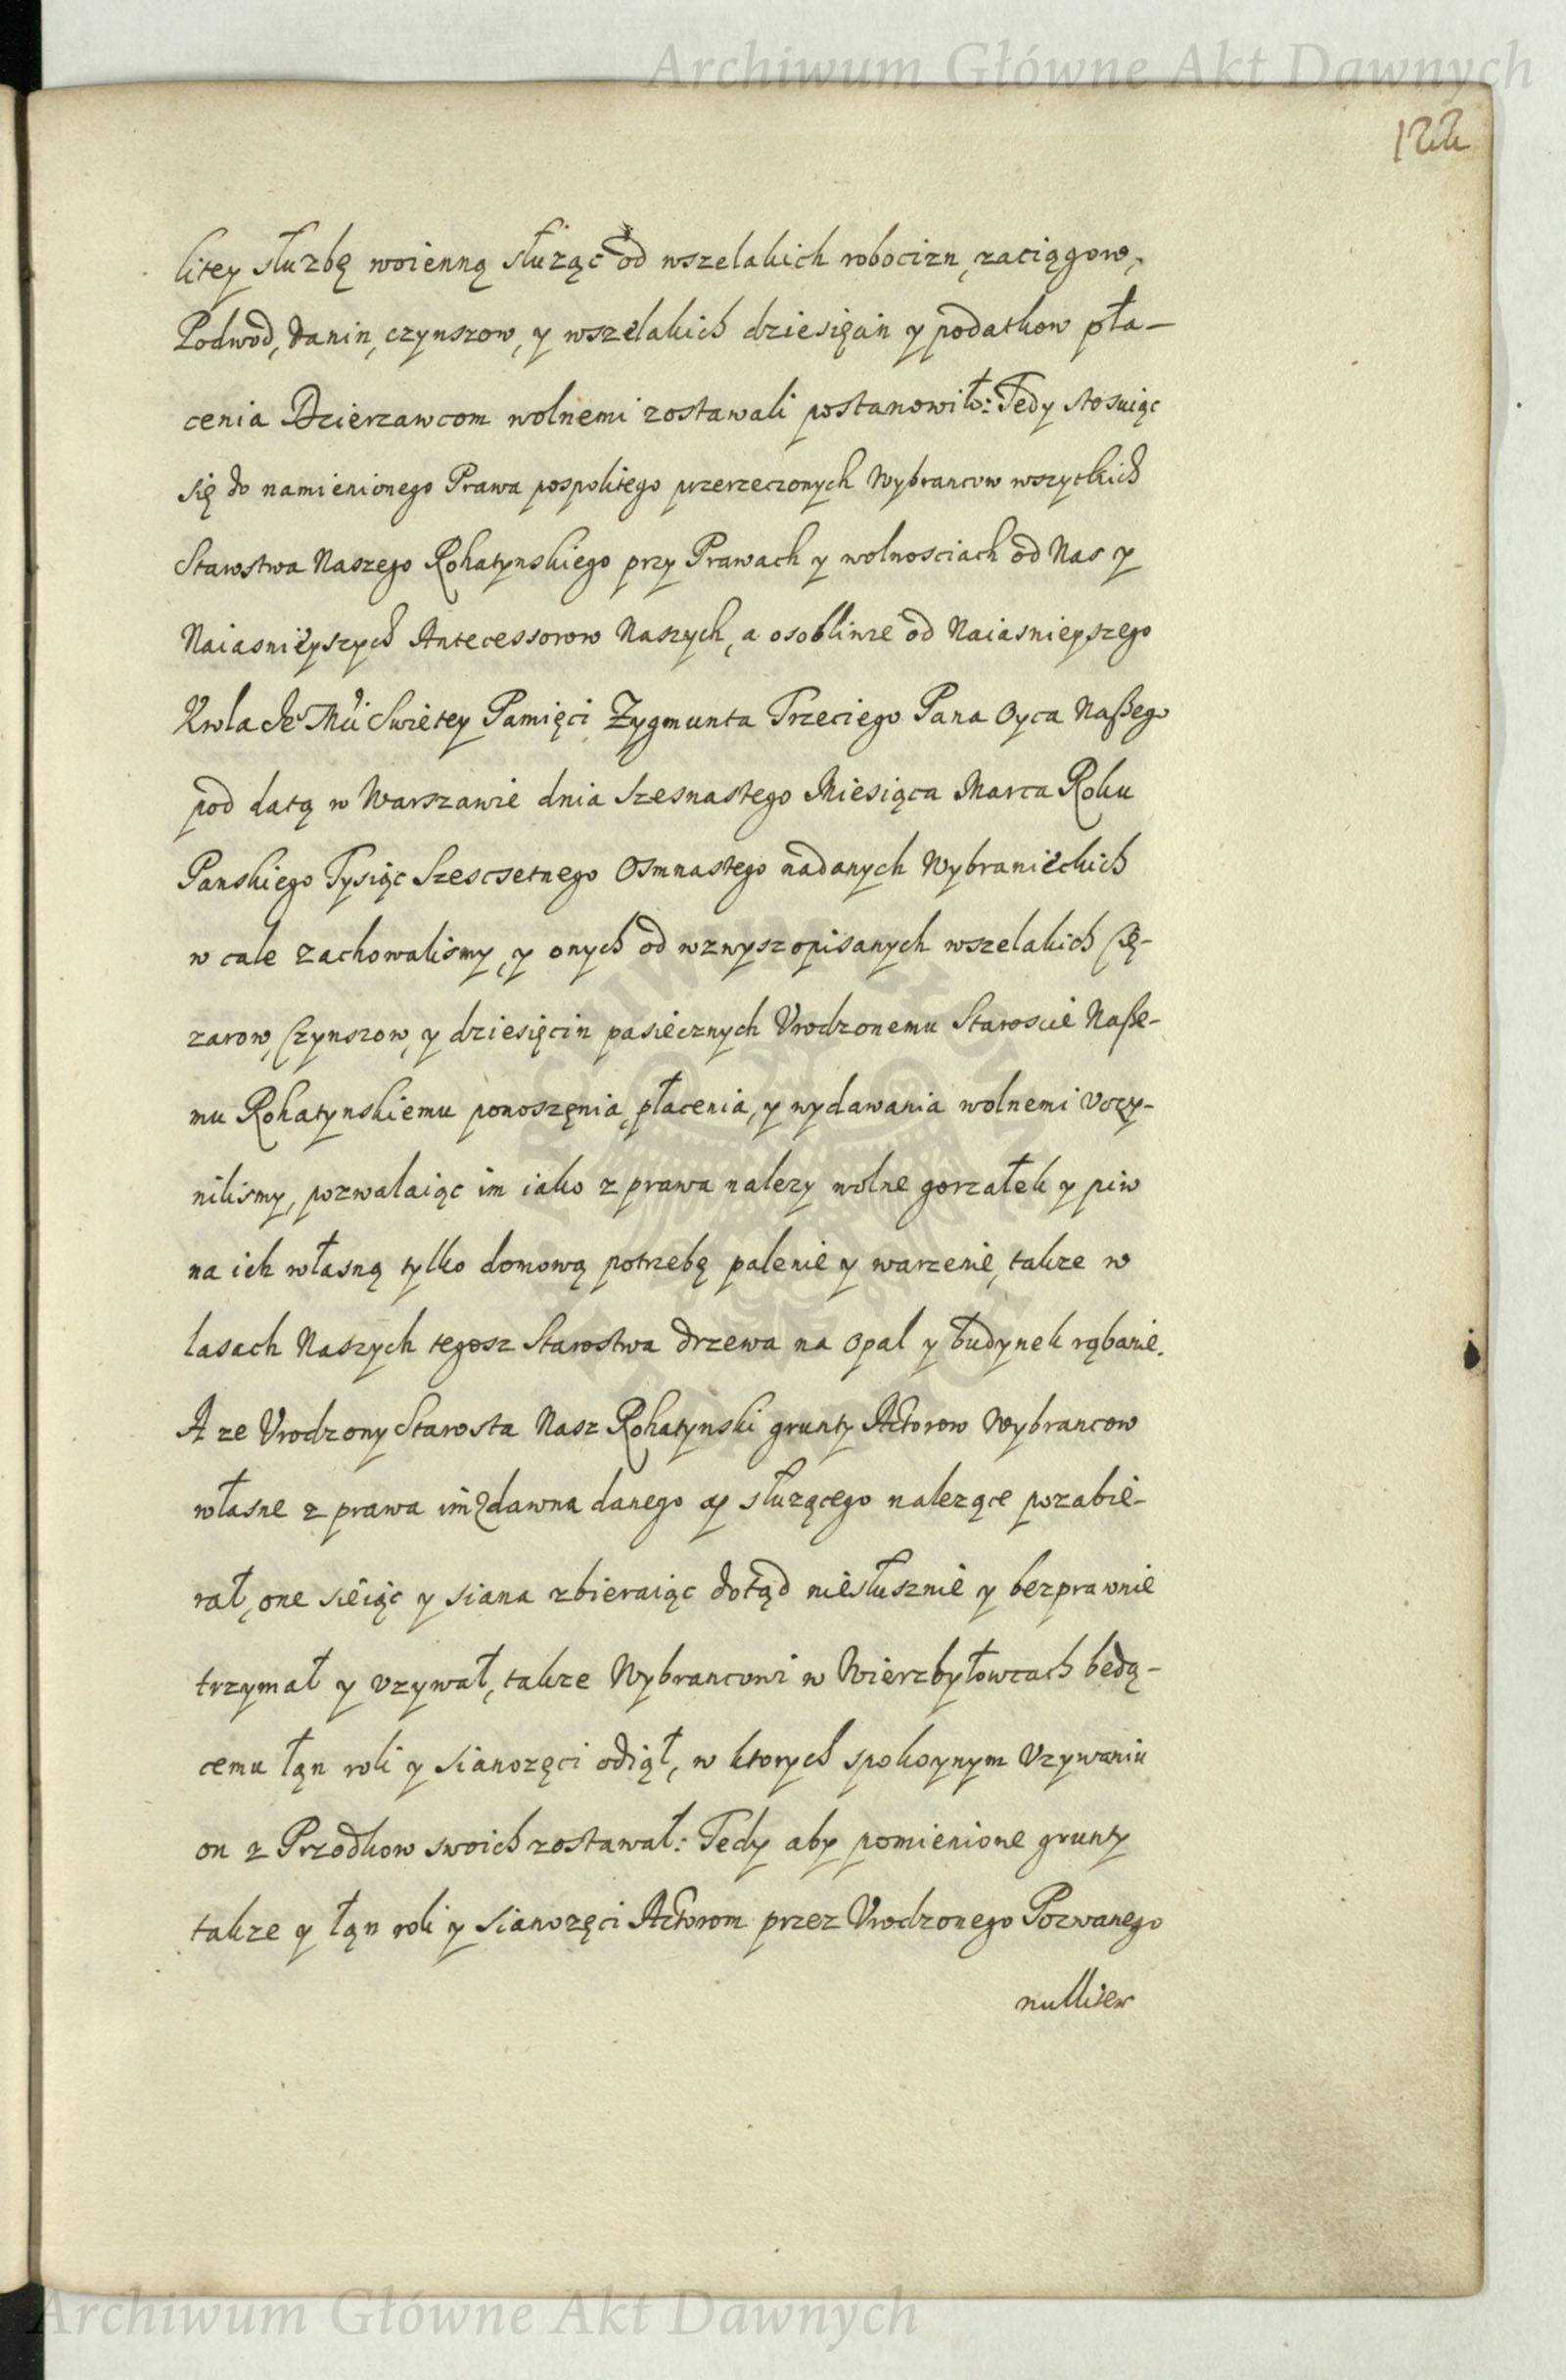 Archiwum Główne Akt Dawnych
122
litey służbę woienną służąc od wszelakich robocizn, zaciągow,
Podwod, danin, czynszow, y wszelakich dziesięcin y podatkow pła-
cenia Dzierzawcom wolnemi zostawali postanowił: Tedy stosuiąc
się do namienionego Prawa pospolitego przerzeczonych Wybrancow wszytkich
Starostwa Naszego Rohatynskiego przy Prawach y wolnosciach od Nas y
Naiasnieyszych Antecessorow Naszych, a osobliwie od Naiasnieyszego
Krola Je° Mći Swietey Pamięci Zygmunta Trzeciego Pana Oyca Naßego
pod datą w Warszawie dnia Szesnastego Miesiąca Marca Roku
Panskiego Tysiąc Szescsetnego Osmnastego nadanych Wybranieckich
w cale zachowalismy, y onych od wzwysz opisanych wszelakich Cię-
zarow, Czynszow, y dziesięcin pasiecznych Vrodzonemu Staroscie Naße-
mu Rohatynskiemu ponoszęnia, płacenia, y wydawania wolnemi vczy-
nilismy, pozwalaiąc im iako z prawa nalezy wolne gorzałek y piw
na ich własną tylko domową potrzebę palenie y warzenie, takze w
lasach Naszych tegosz Starostwa drzewa na opał y budynek rąbanie.
A ze Vrodzony Starosta Nasz Rohatynski grunty Aktorow Wybrancow
własne z prawa im zdawna danego y służącego nalezące pozabie-
rał, one sieiąc y siana zbieraiąc dotąd niesłusznie y bezprawnie
trzymał y vzywał, takze Wybrancowi w Wierzbyłowcach bedą-
cemu łąn roli y sianozęci odiął, w ktorych spokoynym vzywaniu
on z Przodkow swoich zostawał: Tedy aby pomienione grunty
takze y łąn roli y sianozęci Aktorom przez Vrodzonego Pozwanego
nulliter
Archiwum Główne Akt Dawnych